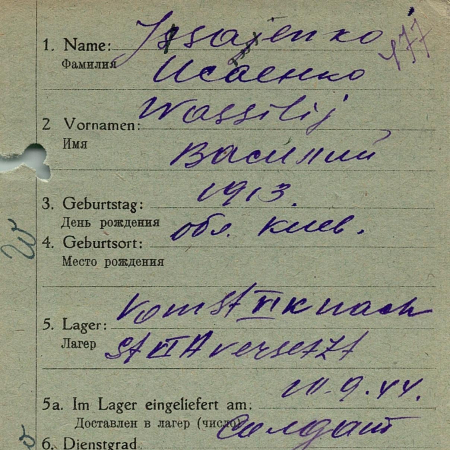 1. Name: Issajenko 177
Фамилия Исаенко
2 Vornamen: Wassilij
Имя Василий
3. Geburtstag: 1913.
День рождения
4. Geburtsort: обл. Киев.
Место рождения
vom St VI K nach
5. Lager: St VI A versetzt
Лагерь
5a. Im Lager eingeliefert am: 9.44.
Доставлен в лагерь (число)
Солдат
6. Dienstgrad